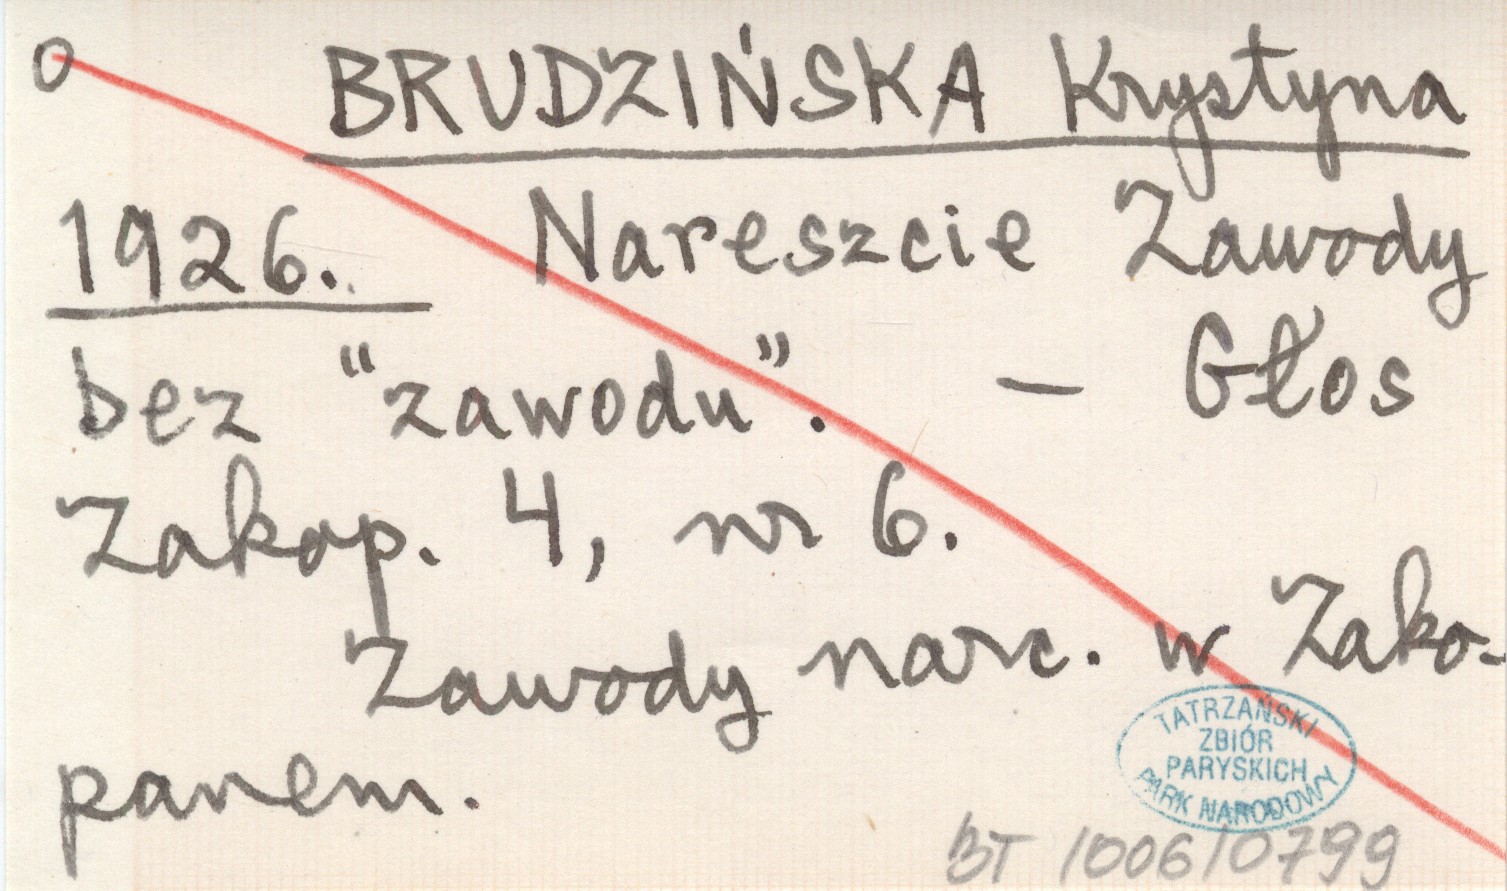 O BRUDZIŃSKA Krystyna
1926. Nareszcie Zawody
bez "zawodu". – Głos
Zakop. 4, nr 6.
Zawody narc. w Zako-
panem.
TATRZAŃSKI
ZBIÓR
PARYSKICH
PARK NARODOWY
BT /006/0799